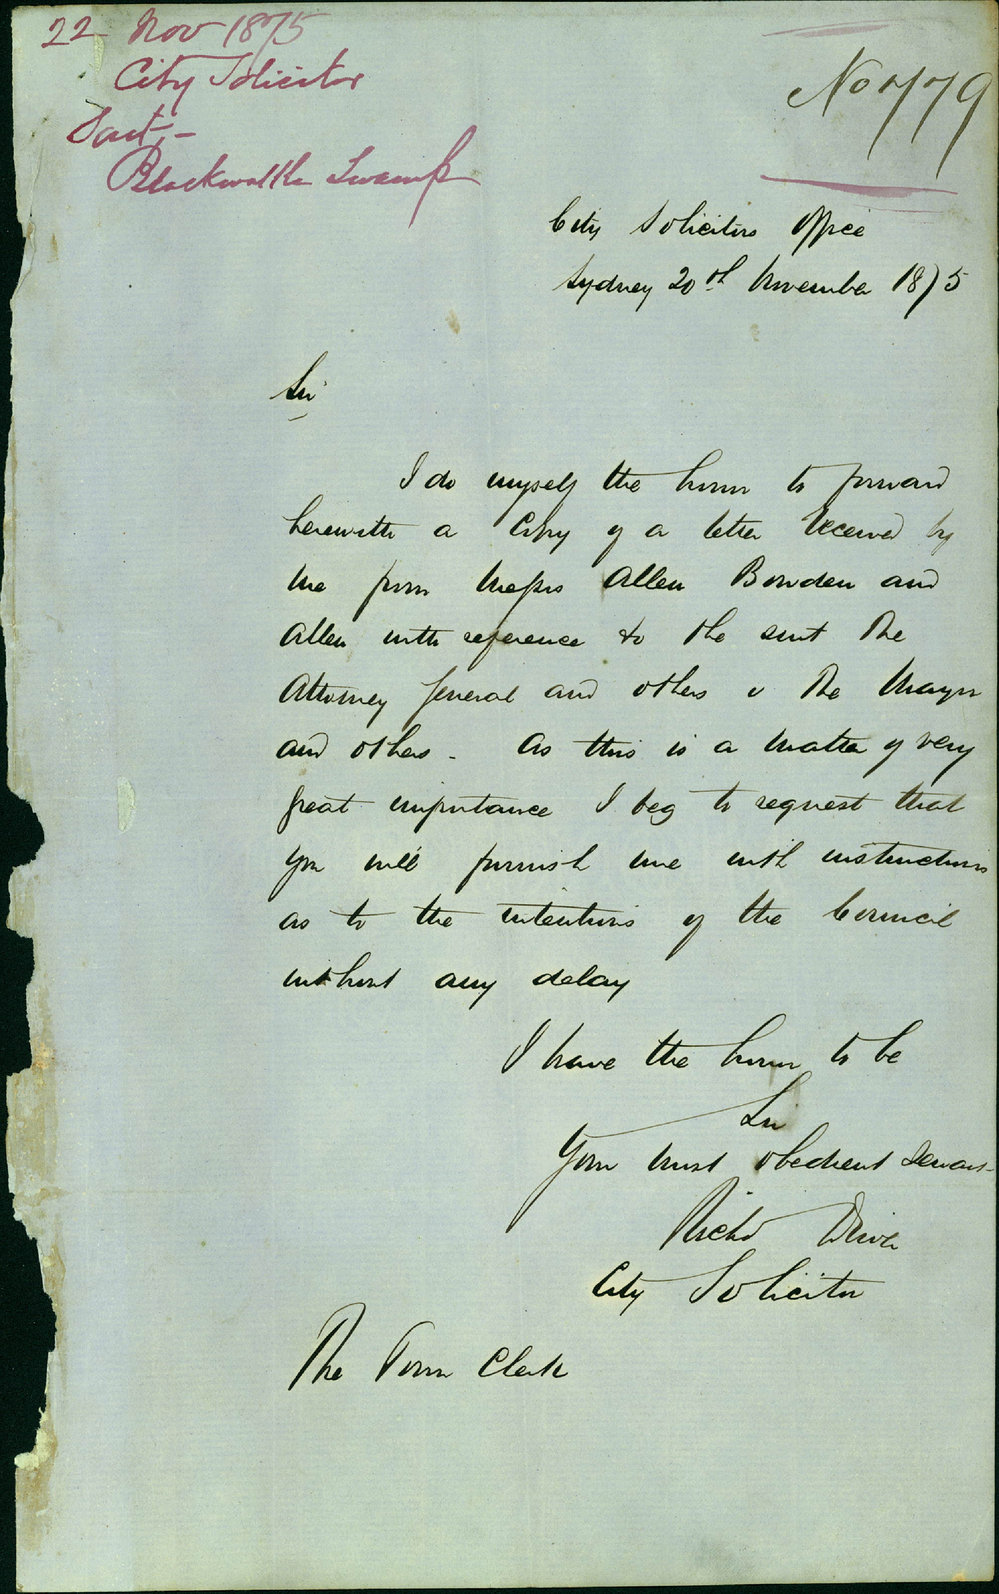 22 Nov 1875
City Solicitor
Suit,-
Blackwattle Swamp
No 779
City Solicitors Office
Sydney 20th November 1875
Sir
I do myself the honor to forward
herewith a Copy of a letter received by
me from Messrs Allen Bowden and
Allen with reference to the suit The
Attorney General and others v The Mayor
and others - As this is a matter of very
great importance I beg to request that
you will furnish me with instructions
as to the intentions of the Council
without any delay
I have the honor to be
Sir
Your most obedient Servant
Richd Driver
City Solicitor
The Town Clerk